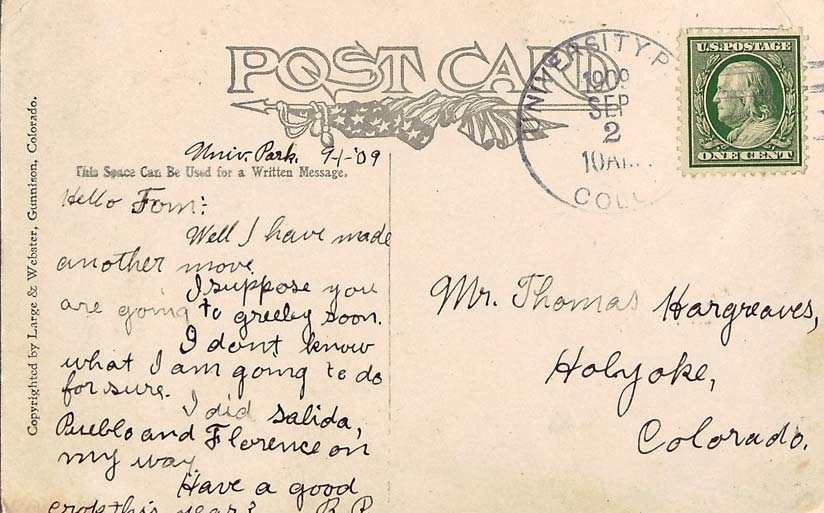 POST CARD
UNIVERSITY P
1909
SEP
2
10AM
COLO
U.S. POSTAGE
ONE CENT
Univ. Park. 9-1-'09
This Space Can Be Used for a Written Message.
Hello Tom:
Well I have made
another move
I suppose you
are going to greeley soon.
I dont know
what I am going to do
for sure.
I did Salida,
Pueblo and Florence on
my way.
Have a good
crop this year? R.P.
Mr. Thomas Hargreaves,
Holyoke,
Colorado.
Copyrighted by Large & Webster, Gunnison, Colorado.